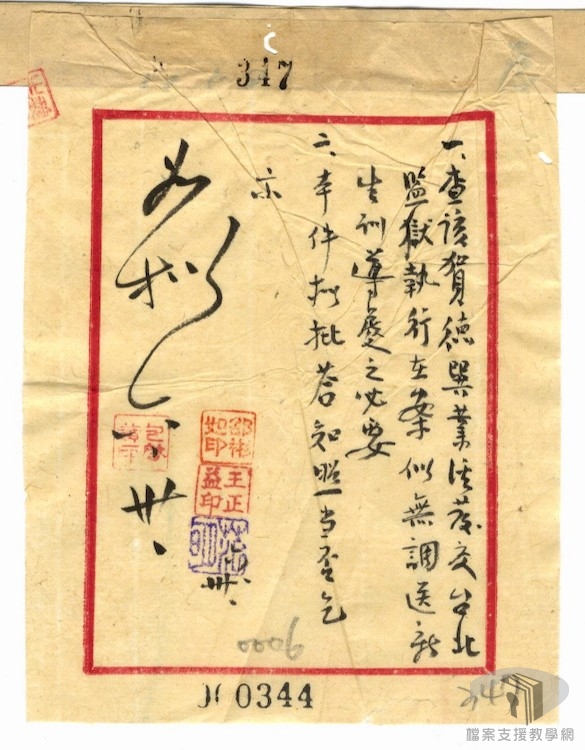 347
一、查該賀德巽業經發交台北
監獄執行在案似無調送新
生訓導處之必要
二、本件擬批答知照當否乞
示
如擬
卅、
邵彬如印
王正益印
卅、
0006
0344
347
檔案支援教學網